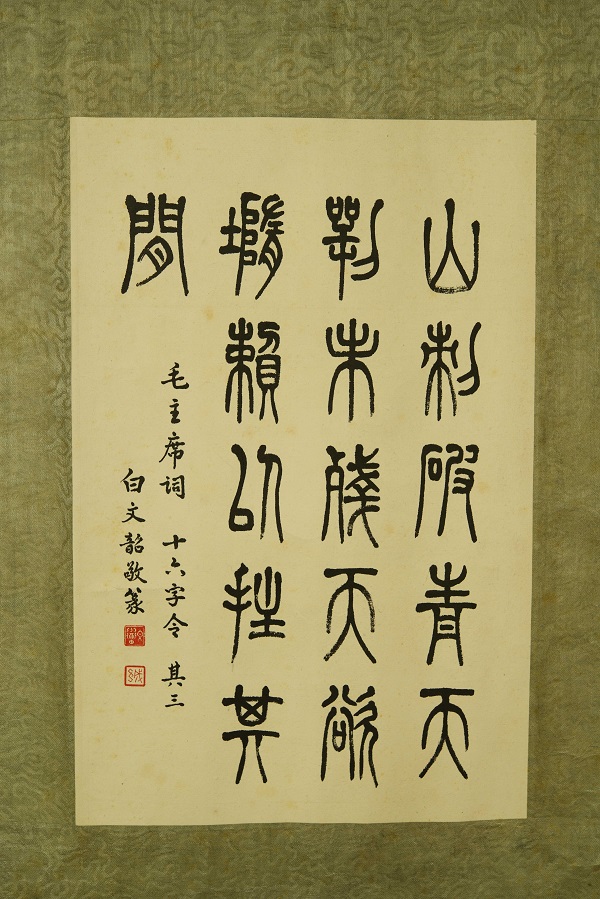 山刺破青天
㓵未殘天欲
墮賴以拄其
閒
毛主席詞 十六字令 其三
白文韶敬篆